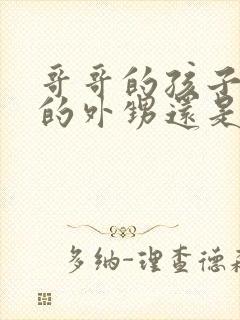 哥哥的孩子
的外甥還是
多纳-理查德森